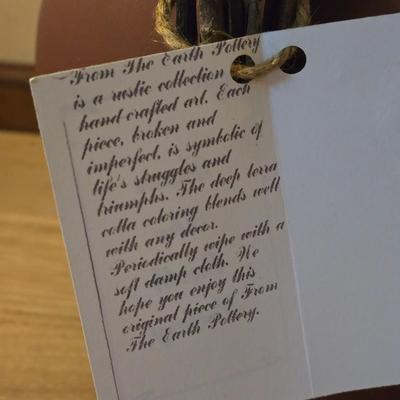 From The Earth Pottery
is a rustic collection
hand crafted art. Each
piece, broken and
imperfect, is symbolic of
life's struggles and
triumphs. The deep terra
cotta coloring blends well
with any decor.
Periodically wipe with a
soft damp cloth. We
hope you enjoy this
original piece of From
The Earth Pottery.